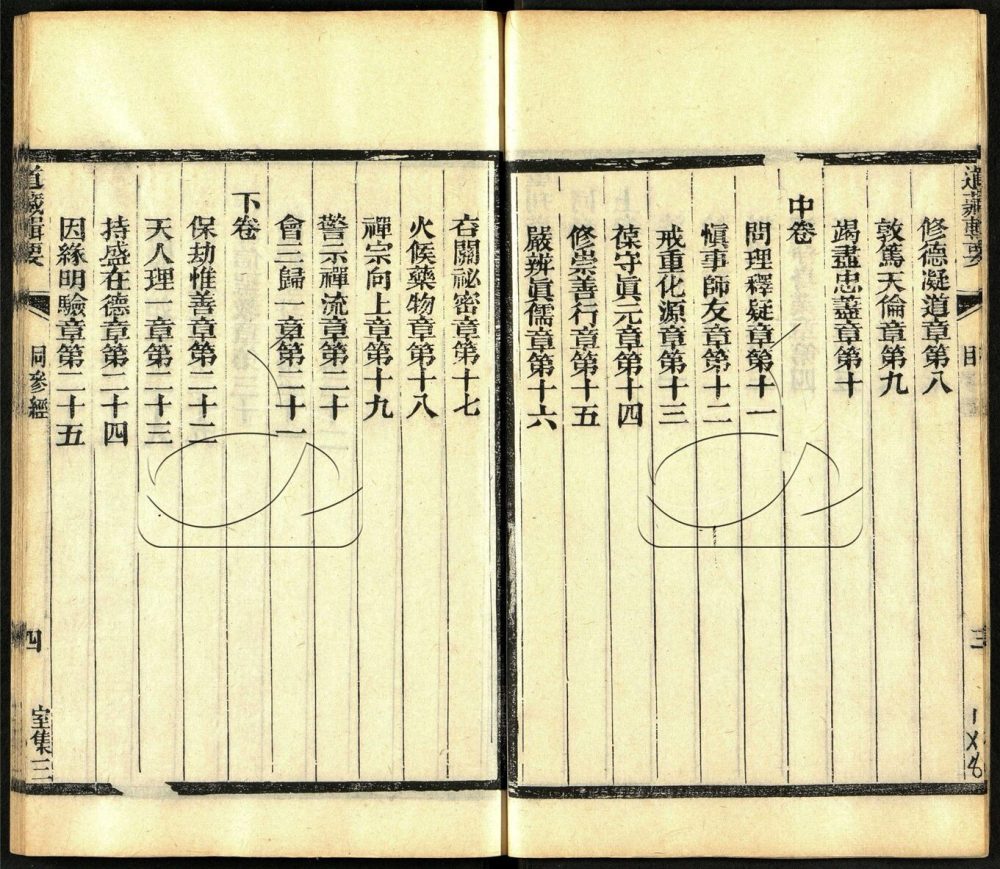 道藏輯要 目 三
修德凝道章第八
敦篤天倫章第九
竭盡忠藎章第十
中卷
問理釋疑章第十一
慎事師友章第十二
戒重化源章第十三
葆守眞元章第十四
修崇善行章第十五
嚴辨眞儒章第十六
𠮷關祕密章第十七
火候藥物章第十八
禪宗向上章第十九
警示禪流章第二十
會三歸一章第二十一
下卷
保劫惟善章第二十二
天人理一章第二十三
持盛在德章第二十四
因緣明驗章第二十五
道藏輯要 同參經 四 室集三